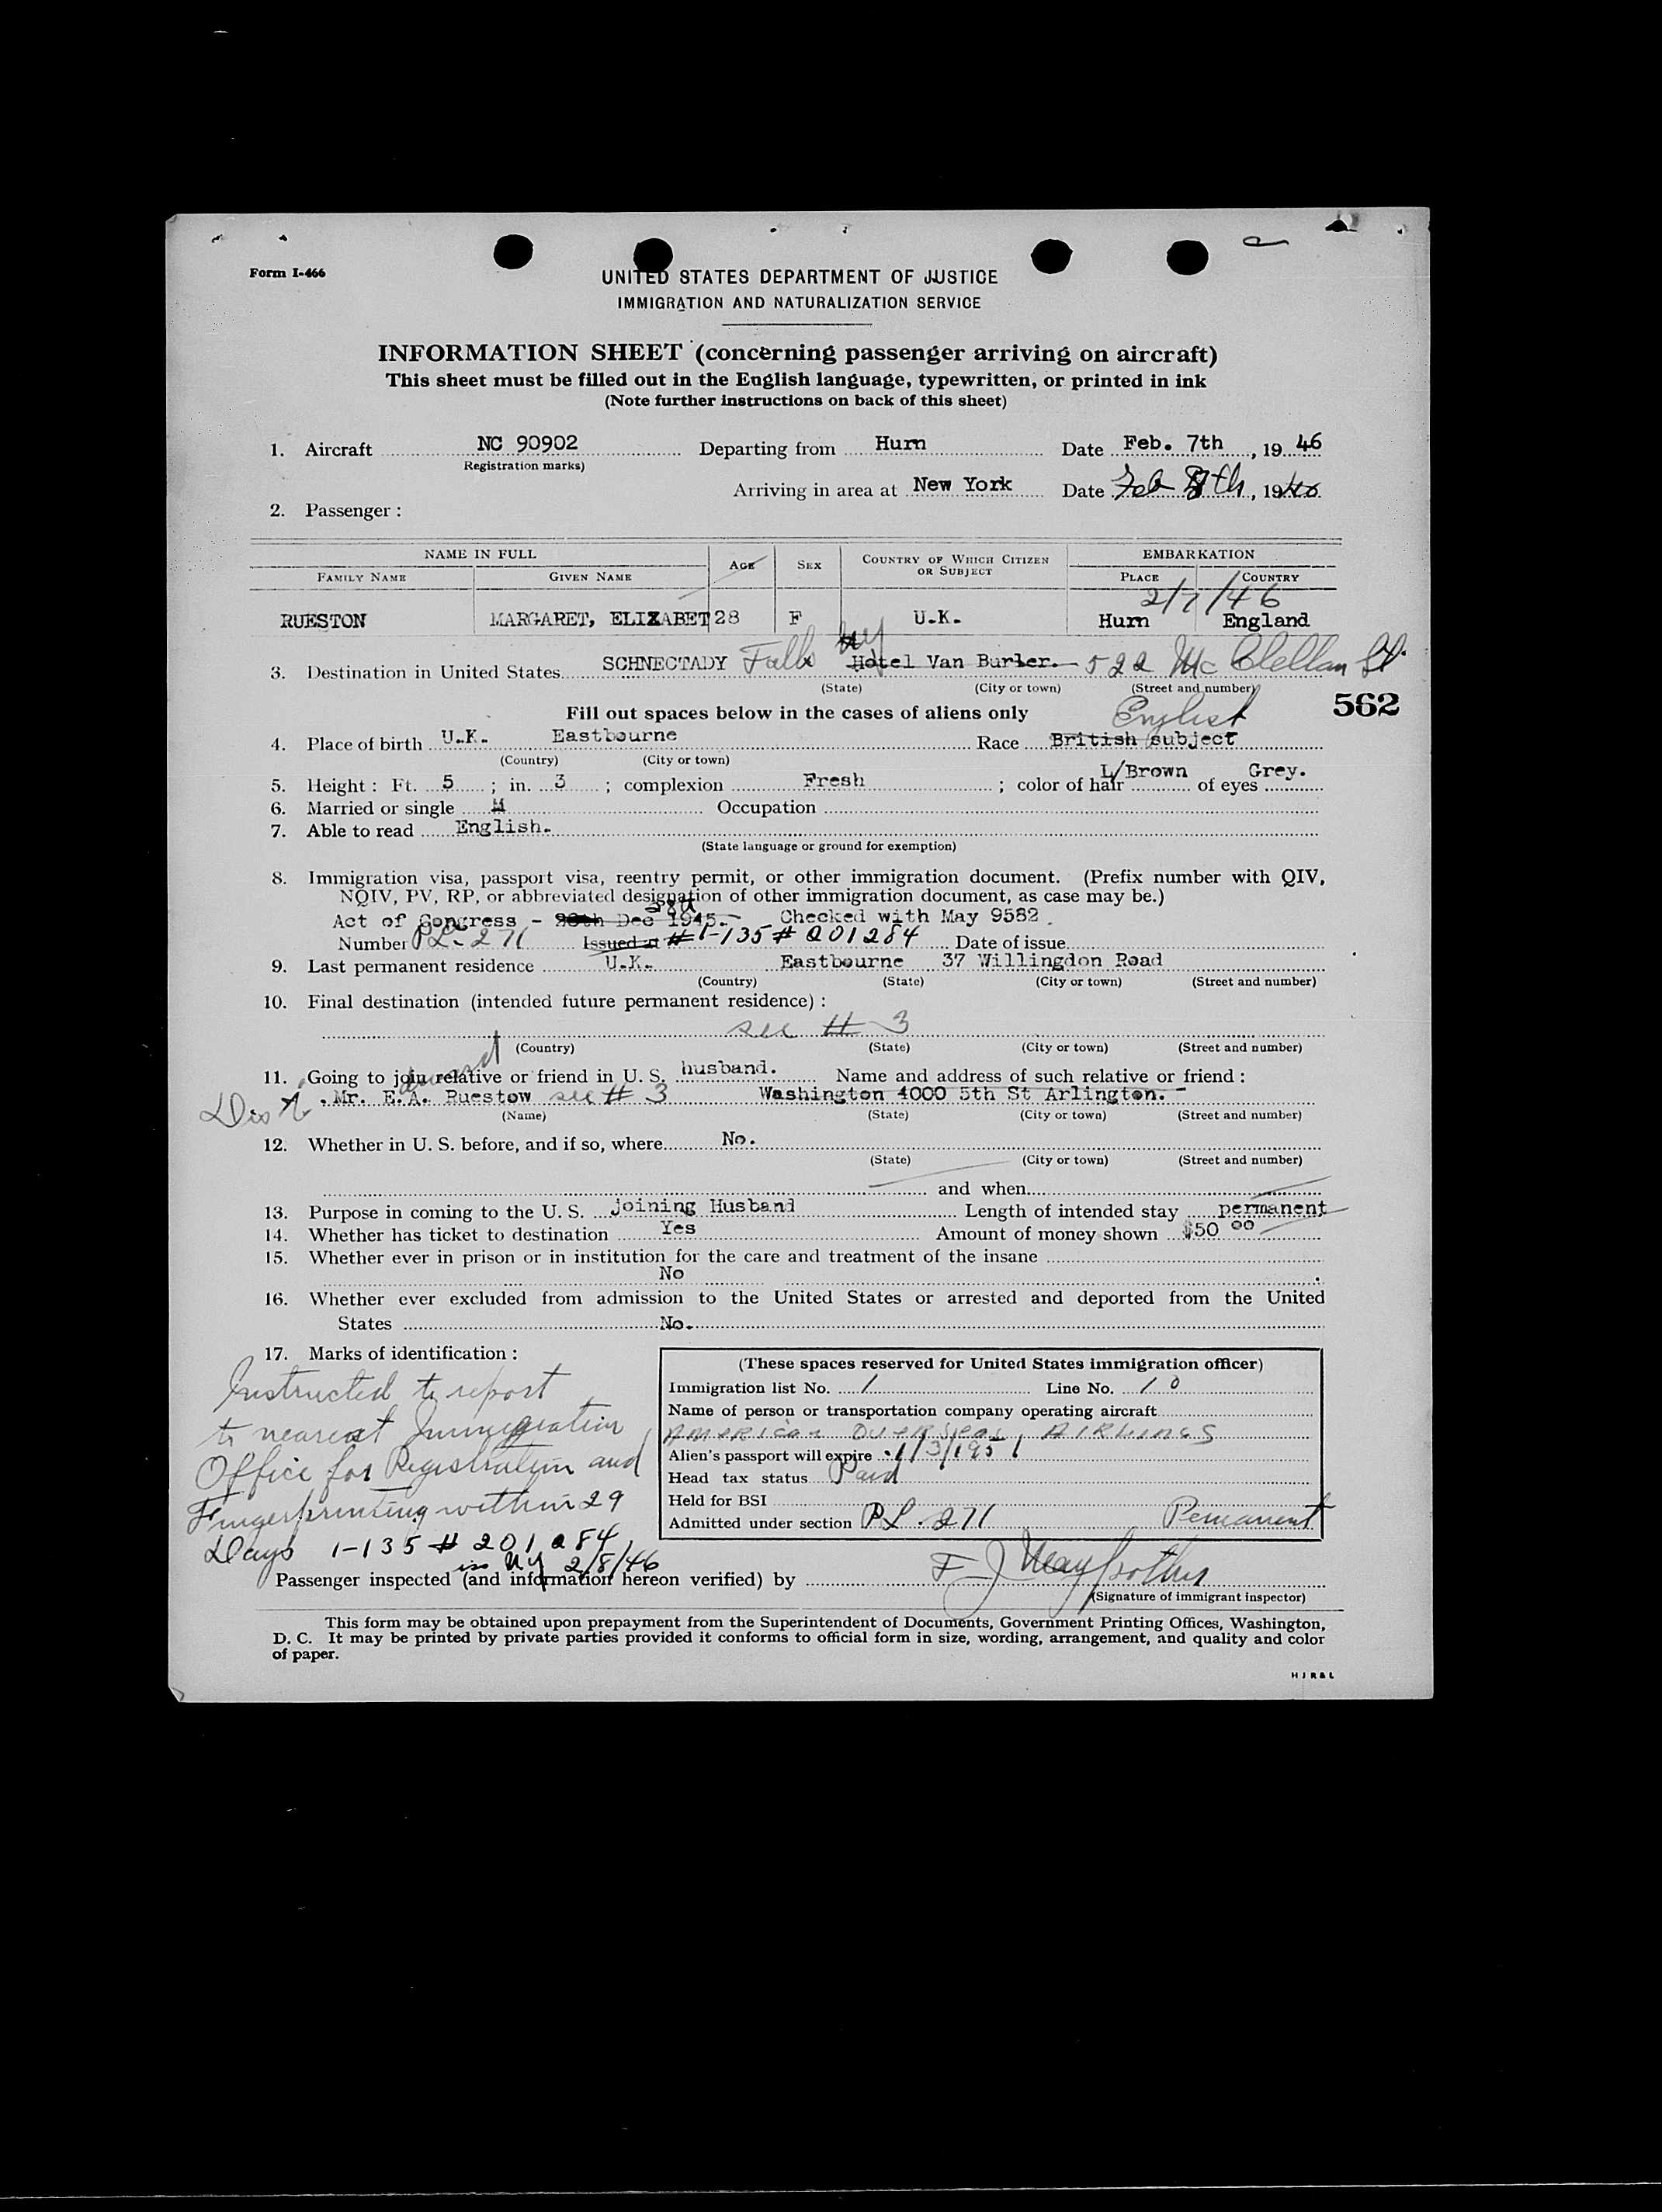 Form I-466
UNITED STATES DEPARTMENT OF JUSTICE
IMMIGRATION AND NATURALIZATION SERVICE
INFORMATION SHEET (concerning passenger arriving on aircraft)
This sheet must be filled out in the English language, typewritten, or printed in ink
(Note further instructions on back of this sheet)
1. Aircraft NC 90902 Departing from Hurn Date Feb. 7th, 1946
Registration marks)
Arriving in area at New York Date Feb 8th, 1946
2. Passenger :
NAME IN FULL AGE SEX COUNTRY OF WHICH CITIZEN OR SUBJECT EMBARKATION
FAMILY NAME GIVEN NAME PLACE COUNTRY
2/7/46
RUESTON MARGARET, ELIZABET 28 F U.K. Hurn England
3. Destination in United States SCHNECTADY Falls NY Hotel Van Burler. 522 McClellan St.
(State) (City or town) (Street and number)
562
Fill out spaces below in the cases of aliens only
English
4. Place of birth U.K. Eastbourne Race British subject
(Country) (City or town)
5. Height : Ft. 5 ; in. 3 ; complexion Fresh ; color of hair L/Brown of eyes Grey.
6. Married or single M Occupation
7. Able to read English.
(State language or ground for exemption)
8. Immigration visa, passport visa, reentry permit, or other immigration document. (Prefix number with QIV,
NQIV, PV, RP, or abbreviated designation of other immigration document, as case may be.)
Act of Congress - 28th Dec 1945. Checked with May 9582.
Number PL-271 Issued at # 1-135 # 201284 Date of issue
9. Last permanent residence U.K. Eastbourne 37 Willingdon Road
(Country) (State) (City or town) (Street and number)
10. Final destination (intended future permanent residence) :
see # 3
(Country) (State) (City or town) (Street and number)
11. Going to join relative or friend in U. S. husband. Name and address of such relative or friend :
Mr. E.A. Ruestow see # 3 Washington 4000 5th St Arlington.
(Name) (State) (City or town) (Street and number)
12. Whether in U. S. before, and if so, where No.
(State) (City or town) (Street and number)
and when
13. Purpose in coming to the U. S. joining Husband Length of intended stay permanent
14. Whether has ticket to destination Yes Amount of money shown $50 00
15. Whether ever in prison or in institution for the care and treatment of the insane
No
16. Whether ever excluded from admission to the United States or arrested and deported from the United
States No.
17. Marks of identification :
Instructed to report
to nearest Immigration
Office for Registration and
Fingerprinting within 29
Days 1-135 # 201284
in NY 2/8/46
(These spaces reserved for United States immigration officer)
Immigration list No. 1 Line No. 10
Name of person or transportation company operating aircraft
AMERICAN OVERSEAS AIRLINES
Alien's passport will expire 1/3/1951
Head tax status Paid
Held for BSI
Admitted under section PL. 271 Permanent
Passenger inspected (and information hereon verified) by F J
(Signature of immigrant inspector)
This form may be obtained upon prepayment from the Superintendent of Documents, Government Printing Offices, Washington,
D. C. It may be printed by private parties provided it conforms to official form in size, wording, arrangement, and quality and color
of paper.
H J R & L